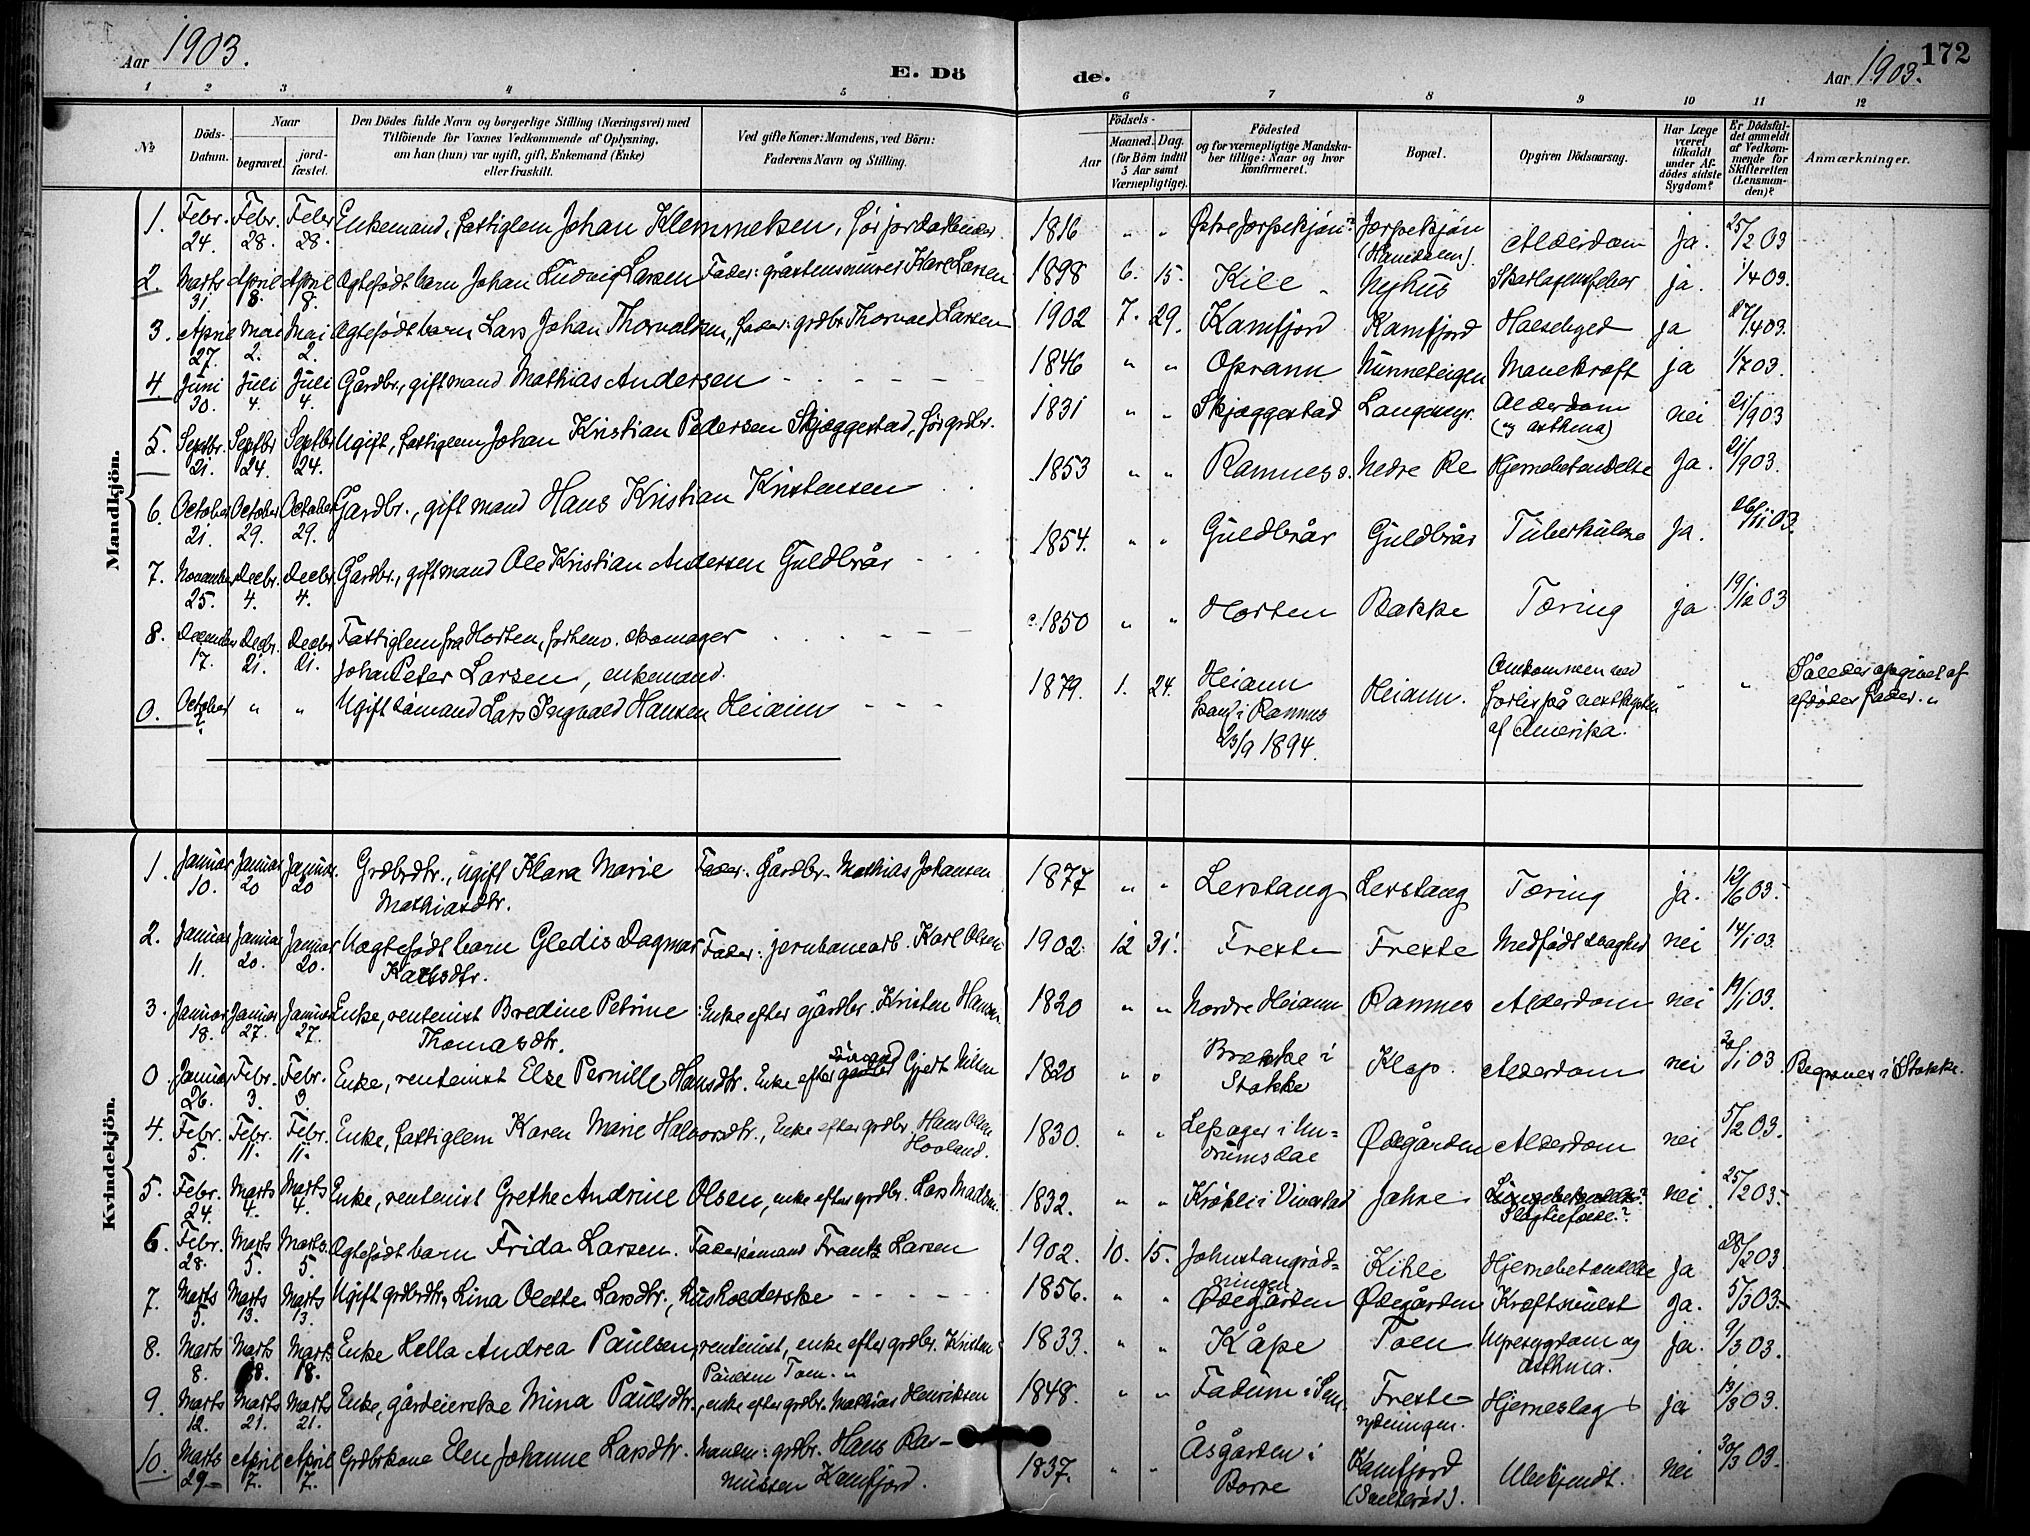 Aar 1903.
E. Döde.
Aar 1903.
172
1 2 3 4 5 6 7 8 9 10 11 12
No
Döds-Datum.
Naar
begravet.
jordfæstet.
Den Dödes fulde Navn og borgerlige Stilling (Næringsvei) med
Tilföiende for Voxnes Vedkommende af Oplysning,
om han (hun) var ugift, gift, Enkemand (Enke)
eller fraskilt.
Ved gifte Koner: Mandens, ved Börn:
Faderens Navn og Stilling.
Födsels-
Aar
Maaned. Dag.
(for Börn indtil
5 Aar samt
Værnepligtige).
Födested
og for værnepligtige Mandskaber tillige: Naar og hvor
konfirmeret.
Bopæl.
Opgiven Dödsaarsag.
Har Læge
været
tilkaldt
under Afdödes sidste
Sygdom?
Er Dödsfaldet anmeldt
af Vedkommende for
Skifteretten
(Lensmanden)?
Anmærkninger.
Mandkjön.
1. Febr. 24. Febr. 28. Febr 28. Enkemand, fattiglem Johan Klemmetsen, 1816 " " Østre Jerpekjøn Jerpekjøn Alderdom ja. 25/2 03
2. Marts 31 April 8. April 8. Ægtefødt barn Johan Ludvig Larsen Fader: Karl Larsen 1898 6. 15. Kile Nyhus ja. 1/4 03.
3. April 27. Mai 2. Mai 2. Ægtefødt barn Lars Johan Thorvaldsen, fader: grdbr. Thorvald Larsen 1902 7. 29. Kamfjord Kamfjord Halsebyld ja 27/4 03.
4 Juni 30. Juli 4. Juli 4. Gårdbr., gift mand Mathias Andersen 1846 " " Oprann Nunneteigen Mavekræft ja 1/7 03.
5. Septbr. 21. Septbr 24. Septbr 24. Ugift, fattiglem Johan Kristian Pedersen Skjæggestad, før grdbr. 1831 " " Skjæggestad Langemyr. Alderdom (og asthma) nei 21/9 03
6. October 21. October 29. October 29. Gårdbr., gift mand Hans Kristian Kristensen 1853 " " Ramnes s. Nedre Re Hjernebetændelse Ja. 21/ 03.
7. November 25. Decbr. 4. Decbr. 4. Gårdbr., gift mand Ole Kristian Andersen Guldbrår 1854. " " Guldbrår Guldbrår Tuberkulose Ja. 26/11 03.
8. December 17. Decbr. 21. Decbr 21. Fattiglem fra Horten, forhenv. skomager
Johan Peter Larsen, enkemand. c. 1850 " " Horten Bakke Tæring ja 19/12 03
0. October ? " " Ugift sømand Lars Ingvald Hansen Heiann 1879. 1. 24. Heiann
konf. i Ramnes
23/9 1894.
Heiann. Omkommen ved
forlis på vestkysten
af Amerika. " "
Således opgivet af
afdødes fader. "
Kvindekjön.
1. Januar 10. Januar 20 Januar. 20 Grdbrdtr., ugift Klara Marie
Mathiasdtr. Fader: Gårdbr. Mathias Johansen 1877 " " Lerstang Lerstang Tæring ja. 03.
2. Januar 11. Januar 20. Januar 20. Uægtefødt barn Gledis Dagmar
Karlsdtr. Fader: jernbanearb. Karl Olsen 1902. 12 31. Freste Freste Medfødt svaghed nei 14/1 03.
3. Januar 18. Januar 27. Januar 27. Enke, rentenist Bredine Petrine
Thomasdtr. Enke efter gårdbr. Kristen Hansen 1820 " " Nordre Heiann Ramnes Alderdom nei 19/1 03.
0. Januar 26. Febr. 3. Febr. 3. Enke, rentenist Else Pernille Hansdtr. Enke efter sømand Gjedt Nilsen 1820 " " Brekke i
Stokke Klop. Alderdom nei 30/1 03. Begraven i Stokke.
4. Febr. 5. Febr. 11. Febr. 11. Enke, fattiglem Karen Marie Halvorsdtr., Enke efter grdbr. Hans Olsen
Hovland. 1830. " " i Undrumsdal Ødegården Alderdom nei 5/2 03.
5. Febr. 24. Marts 4. Marts 4. Enke, rentenist Grethe Andrine Olsen, enke efter grdbr. Lars Madsen 1832. " " Krøkli i Vivestad Jahre nei. 25/2 03.
6. Febr. 28. Marts 5. Marts. 5. Ægtefødt barn Frida Larsen. Fader sømand Frantz Larsen 1902. 10. 15. Johnstangrødningen Kihle Hjernebetændelse Ja 28/2 03.
7. Marts 5. Marts 13. Marts 13. Ugift grdbrdtr. Lina Olette Larsdtr., husholderske 1856. " " Ødegården Ødegården Kræftsvulst ja. 5/3 03.
8. Marts 8. Marts 18. Marts 18. Enke Lella Andrea Paulsen, rentenist, enke efter grdbr. Kristen
Paulsen Toen. " 1833. " " Kåpe Toen Nyresygdom og
asthma ja. 9/3 03.
9. Marts 12. Marts 21. Marts 21. Enke, gårdeierske Mina Paulsdtr., enke efter grdbr. Mathias Henriksen 1848. " " Fadum i Sem Freste
rydningen. Hjerneslag ja 13/3 03.
10. Marts 29 April 7. April 7. Grdbrkone Elen Johanne Larsdtr. Manden: grdbr. Hans Rasmussen Kamfjord. 1837. " " Åsgården i
Borre Kamfjord Ubekjendt. nei 30/3 03.